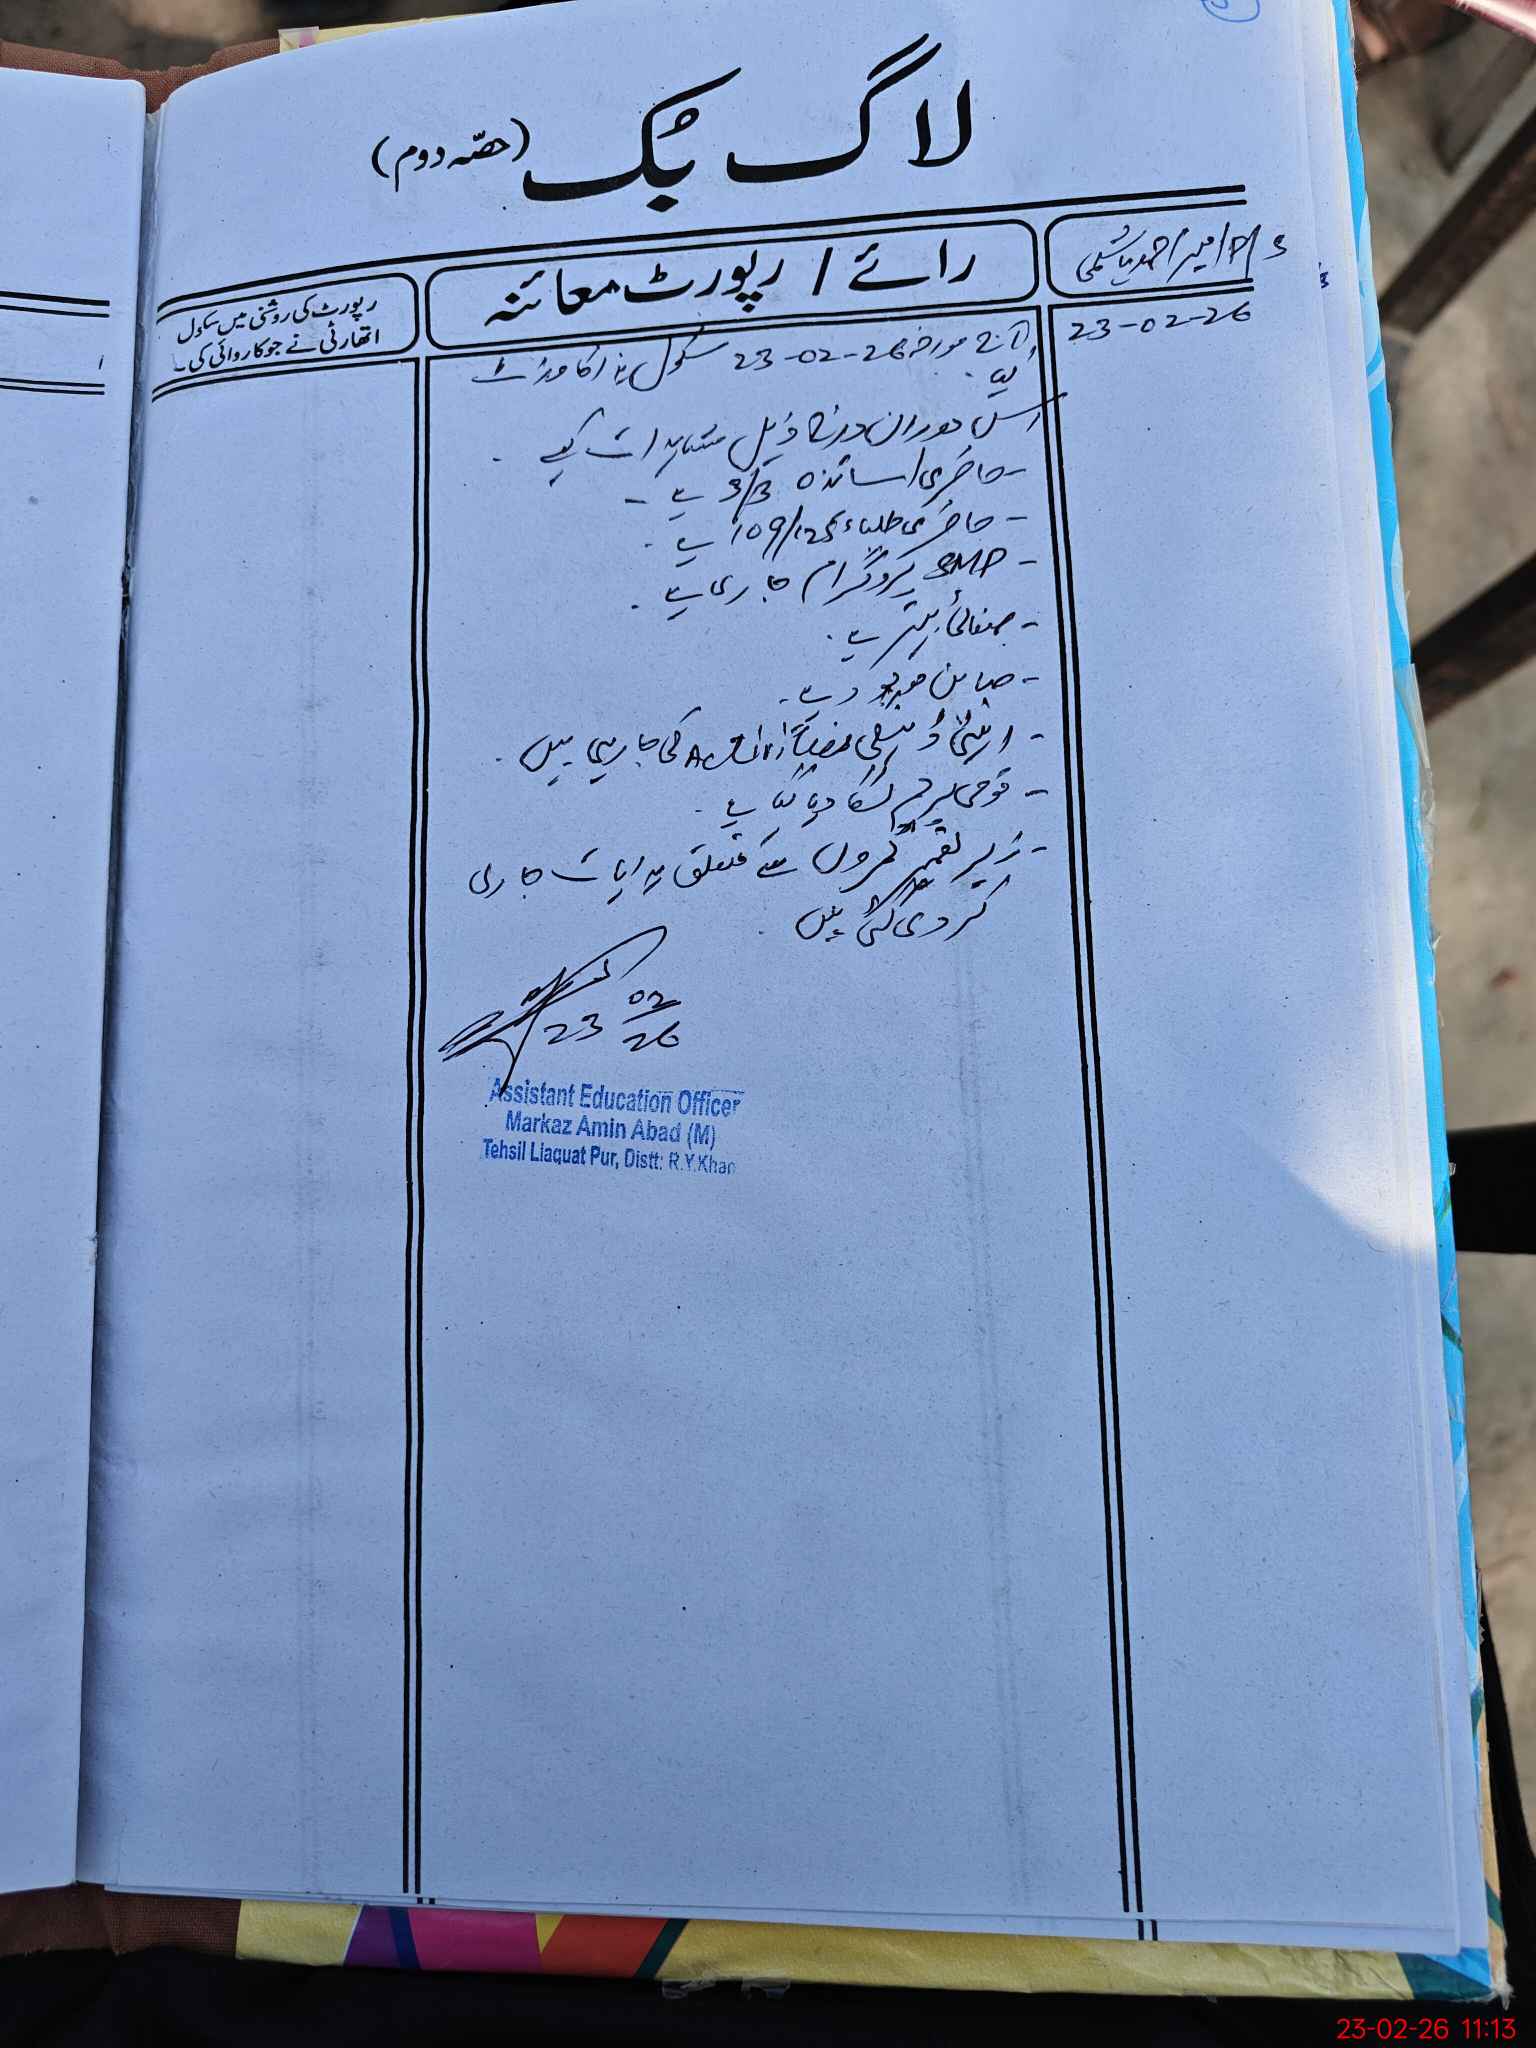 لاگ بک (حصّہ دوم)
رائے / رپورٹ معائنہ
رپورٹ کی روشنی میں سکول
اتھارٹی نے جو کاروائی کی۔
23-02-26
آج مورخہ 23-02-26 سکول ہذا کا وزٹ
کیا۔
اس دوران درج ذیل مشاہدات کیے۔
- حاضری اساتذہ 3/3 ہے۔
- حاضری طلباء 109/125 ہے۔
- SMP پروگرام جاری ہے۔
- صفائی بہتر ہے۔
- صابن موجود ہے۔
- اینٹی ڈینگی Activities کی جا رہی ہیں۔
- قومی پرچم لگا دیا گیا ہے۔
- زیر تعمیر کمروں سے متعلق ہدایات جاری
کر دی گئی ہیں۔
23 02
26
Assistant Education Officer
Markaz Amin Abad (M)
Tehsil Liaquat Pur, Distt: R.Y.Khan
23-02-26 11:13